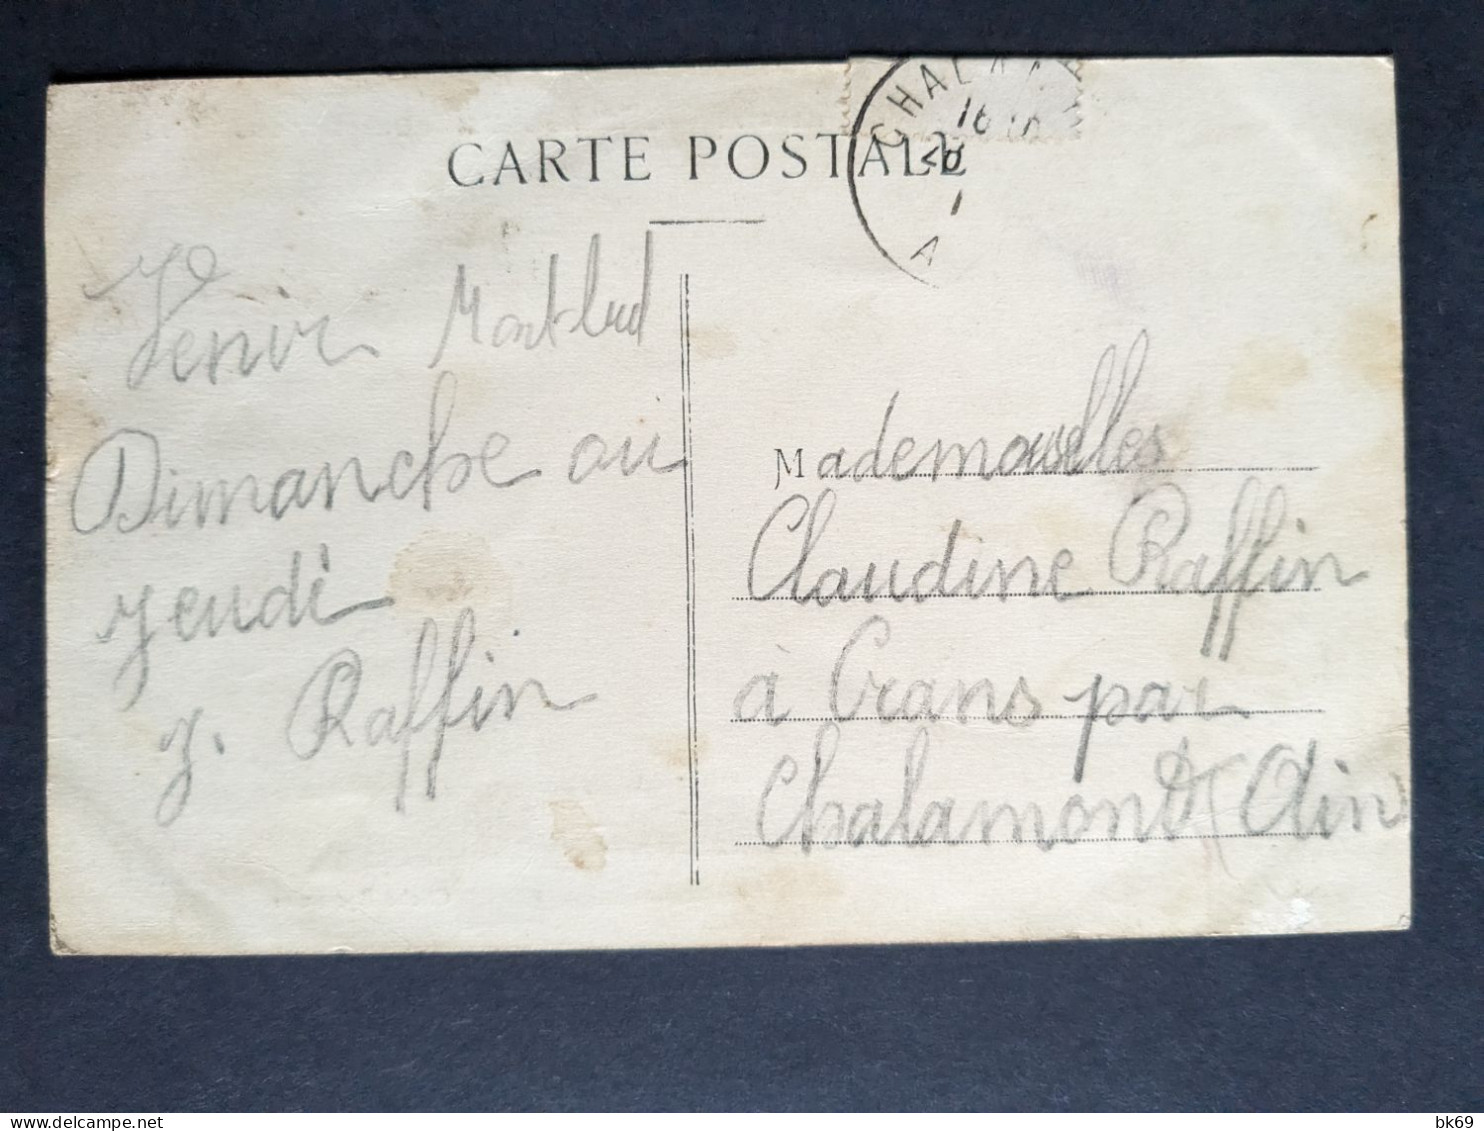 CARTE POSTALE
CHALA
A
Venir Montlud
Dimanche ou
jeudi
J. Raffin
Mademoiselles
Claudine Raffin
à Crans par
Chalamont (Ain)
Delcampe.net
bk69